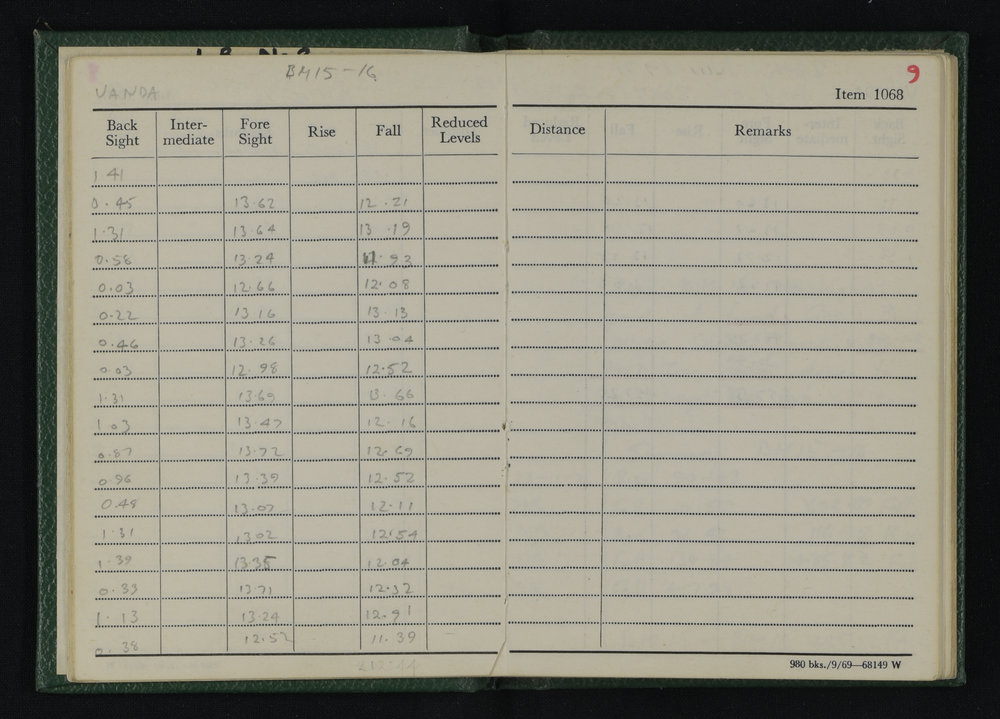 BM15-16
9
VANDA
Item 1068
Back Sight Inter-mediate Fore Sight Rise Fall Reduced Levels Distance Remarks
1.41
0.45 13.62 12.21
1.31 13.64 13.19
0.58 13.24 11.93
0.03 12.66 12.08
0.22 13.16 13.13
0.46 13.26 13.04
0.03 12.98 12.52
1.31 13.69 13.66
1.03 13.47 12.16
0.87 13.72 12.69
0.96 13.39 12.52
0.48 13.07 12.11
1.31 13.02 12.54
1.39 13.35 12.04
0.33 13.71 12.32
1.13 13.24 12.91
0.38 12.52 11.39
212.44
980 bks./9/69—68149 W